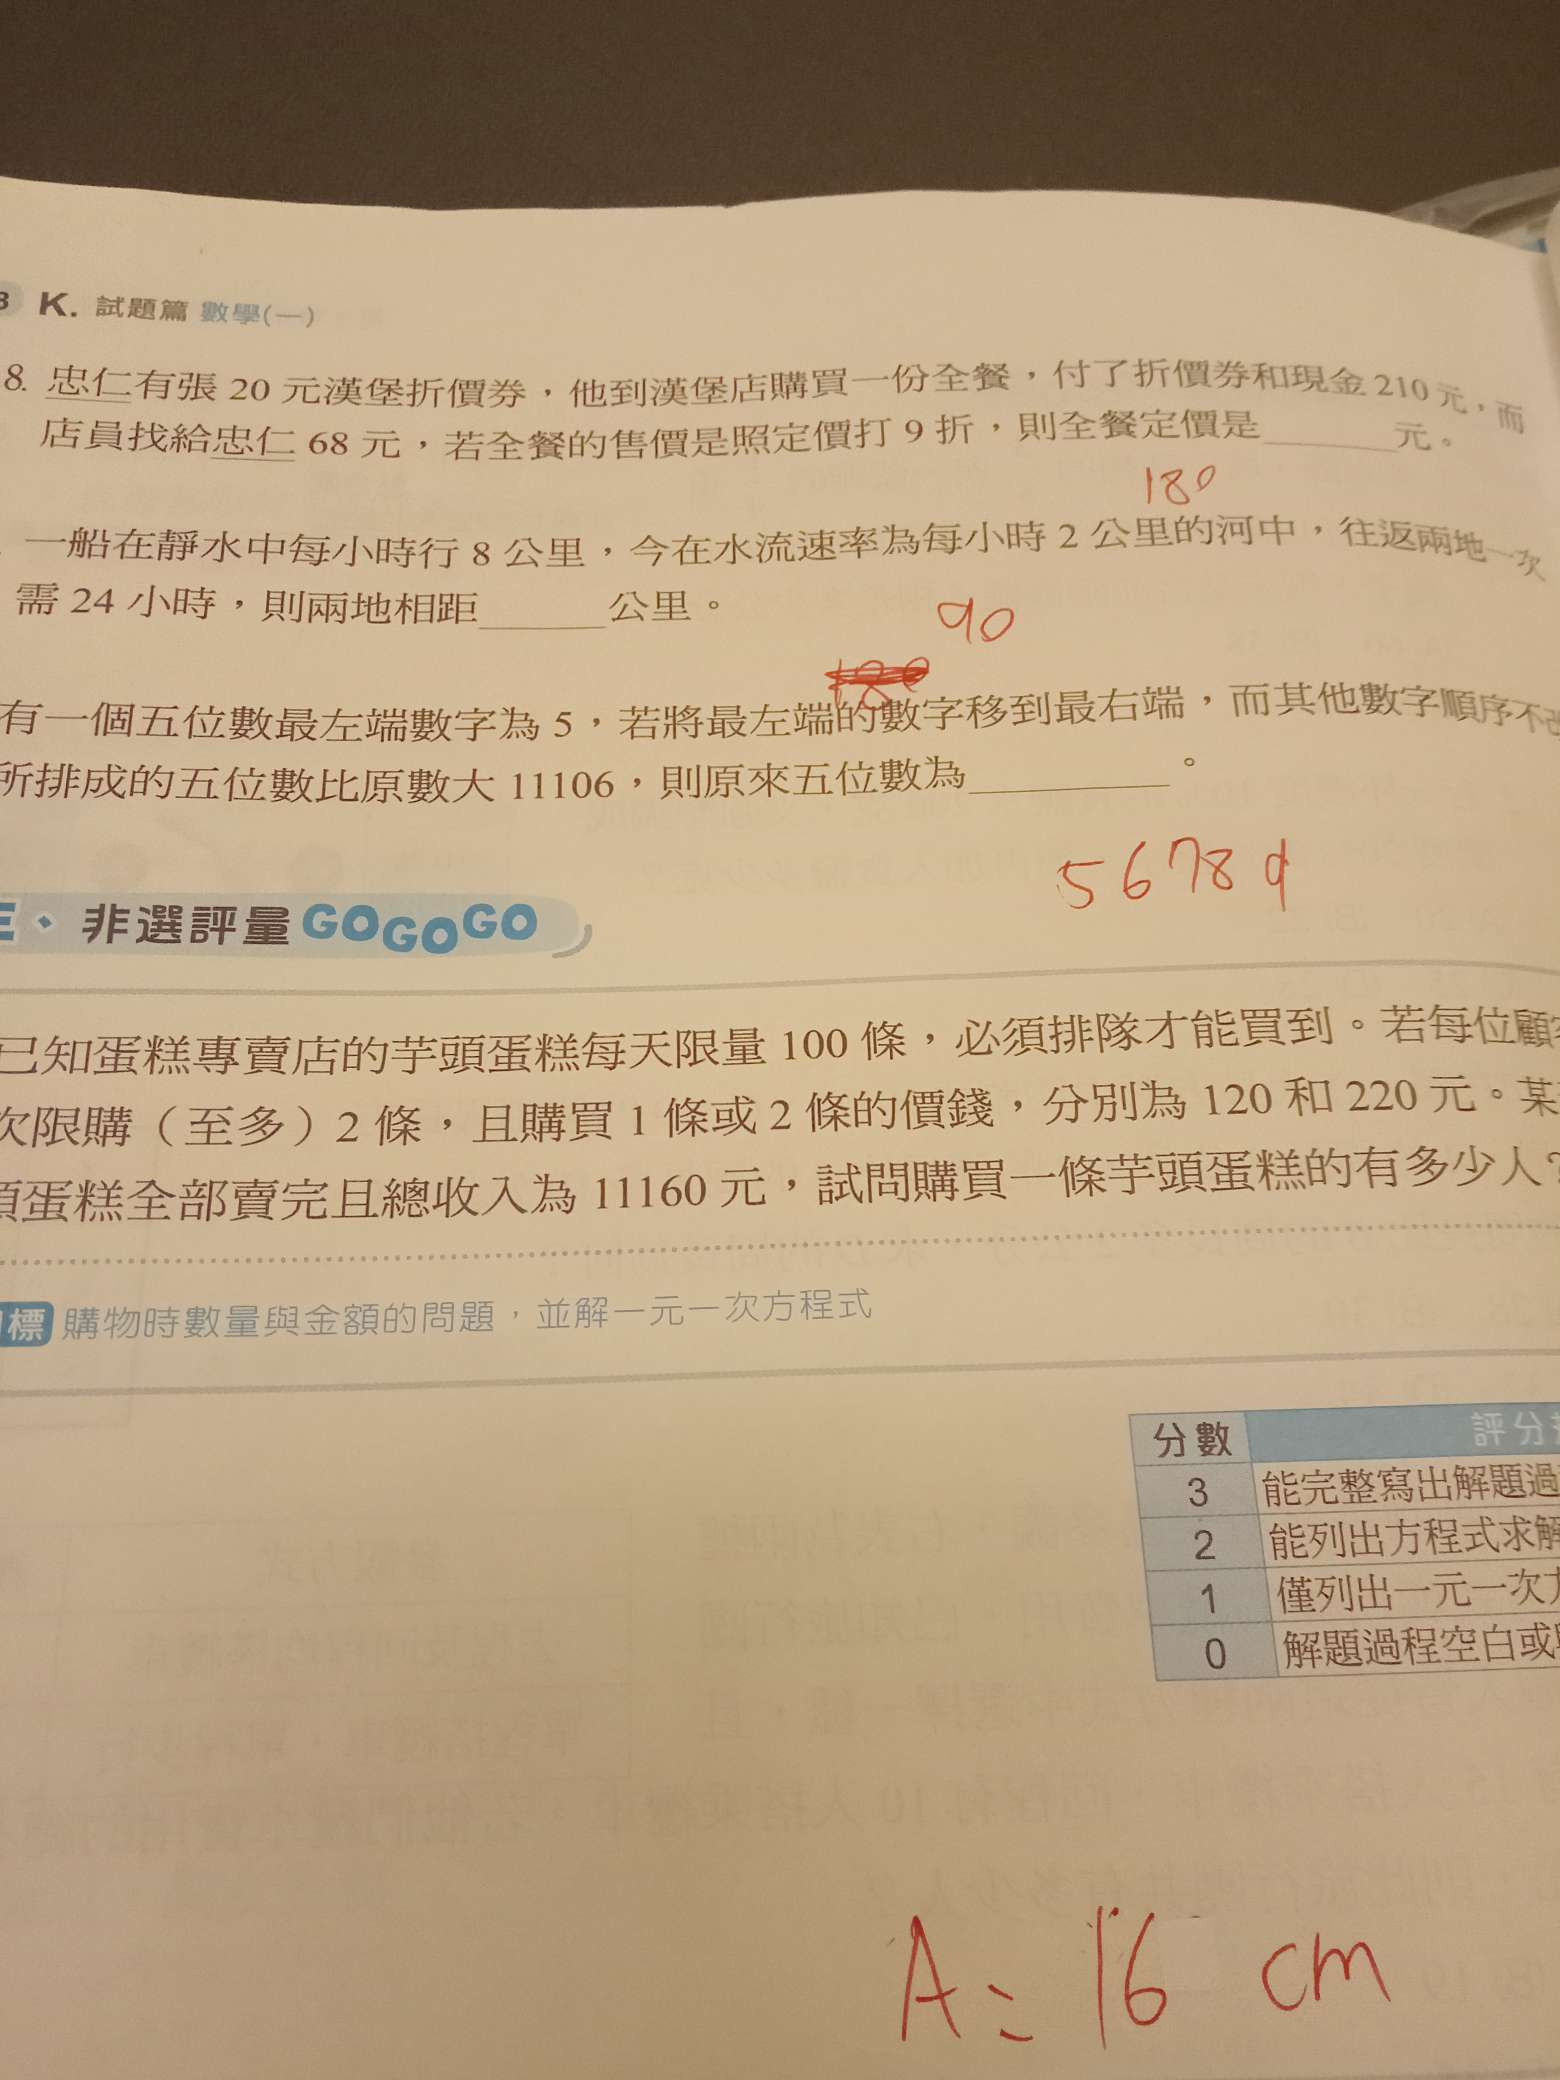 K. 試題篇 數學(一)
8. 忠仁有張 20 元漢堡折價券，他到漢堡店購買一份全餐，付了折價券和現金 210 元，而
店員找給忠仁 68 元，若全餐的售價是照定價打 9 折，則全餐定價是______元。
180
一船在靜水中每小時行 8 公里，今在水流速率為每小時 2 公里的河中，往返兩地一次
需 24 小時，則兩地相距______公里。
90
有一個五位數最左端數字為 5，若將最左端的數字移到最右端，而其他數字順序不
所排成的五位數比原數大 11106，則原來五位數為__________。
56789
非選評量 GOGOGO
已知蛋糕專賣店的芋頭蛋糕每天限量 100 條，必須排隊才能買到。若每位顧
次限購（至多）2 條，且購買 1 條或 2 條的價錢，分別為 120 和 220 元。某
頭蛋糕全部賣完且總收入為 11160 元，試問購買一條芋頭蛋糕的有多少人？
標 購物時數量與金額的問題，並解一元一次方程式
分數 評分
3 能完整寫出解題過
2 能列出方程式求解
1 僅列出一元一次
0 解題過程空白或
A = 16 cm